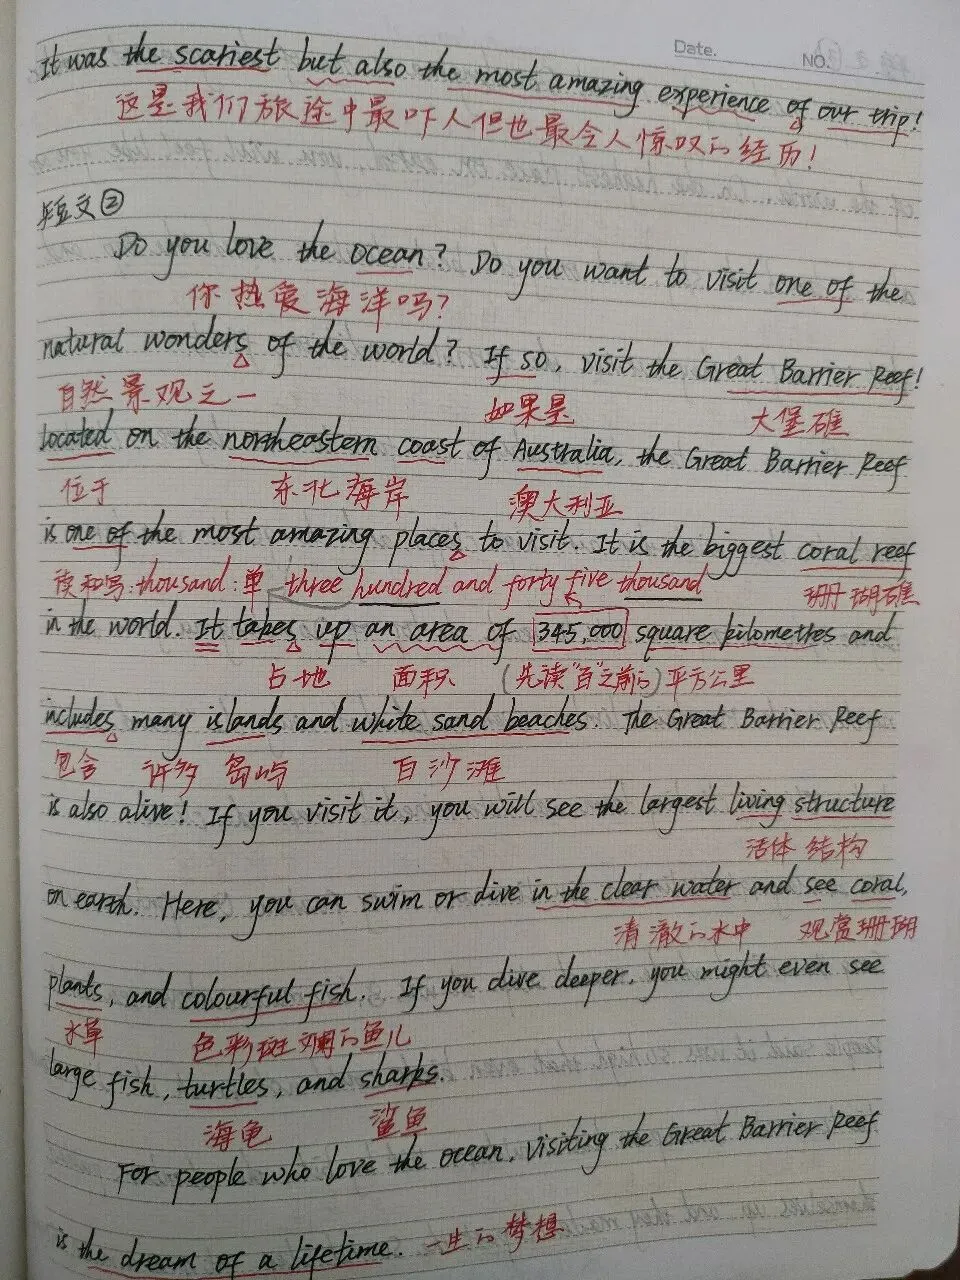 Date.
NO.
It was the scariest but also the most amazing experience of our trip!
这是我们旅途中最吓人但也最令人惊叹的经历!
短文②
Do you love the ocean? Do you want to visit one of the
你热爱海洋吗?
natural wonders of the world? If so, visit the Great Barrier Reef!
自然景观之一 如果是 大堡礁
located on the northeastern coast of Australia, the Great Barrier Reef
位于 东北海岸 澳大利亚
is one of the most amazing places to visit. It is the biggest coral reef
读和写:thousand:单 three hundred and forty five thousand 珊瑚礁
in the world. It takes up an area of 345,000 square kilometres and
占地 面积 (先读"百"之前的) 平方公里
includes many islands and white sand beaches. The Great Barrier Reef
包含 许多 岛屿 白沙滩
is also alive! If you visit it, you will see the largest living structure
活体 结构
on earth. Here, you can swim or dive in the clear water and see coral,
清澈的水中 观赏珊瑚
plants, and colourful fish. If you dive deeper, you might even see
水草 色彩斑斓的鱼儿
large fish, turtles, and sharks.
海龟 鲨鱼
For people who love the ocean, visiting the Great Barrier Reef
is the dream of a lifetime. 一生的梦想